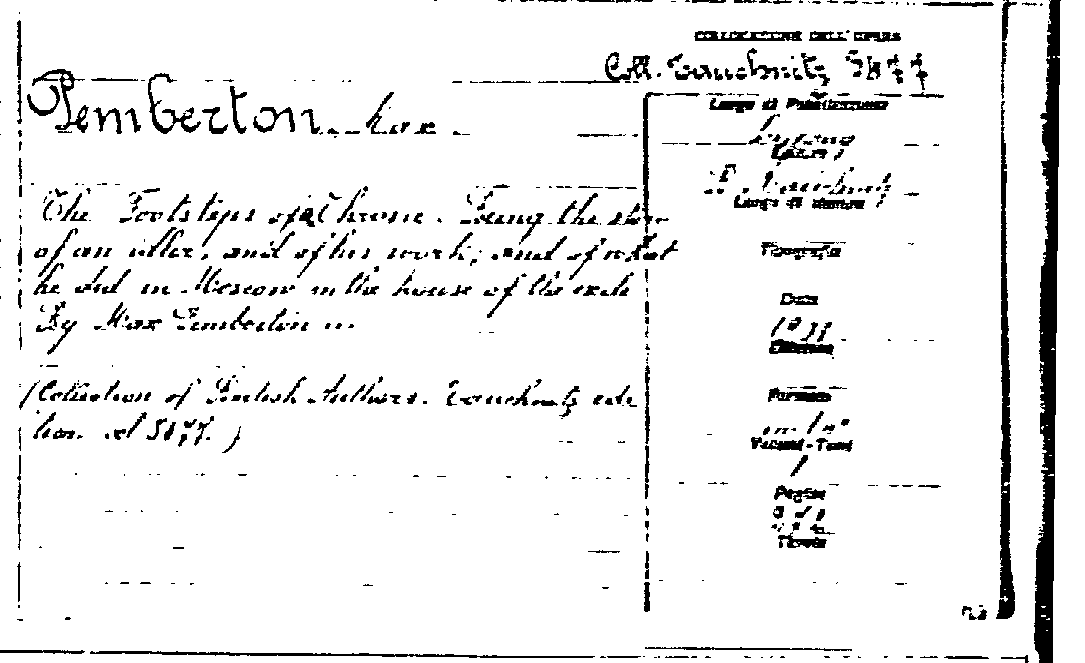 COLLOCAZIONE DELL'OPERA
Coll. Tauchnitz
Pemberton Max
Luogo di Pubblicazione
Editore
B. Tauchnitz
The Footsteps of a Throne. Being the story
of an idler, and of his work; and of what
he did in Moscow in the house of the exile
By Max Pemberton
Tipografia
Data
Edizione
(Collection of British Authors. Tauchnitz edi
tion.
Formato
Volumi-Tomi
1
Pagine
Tavole